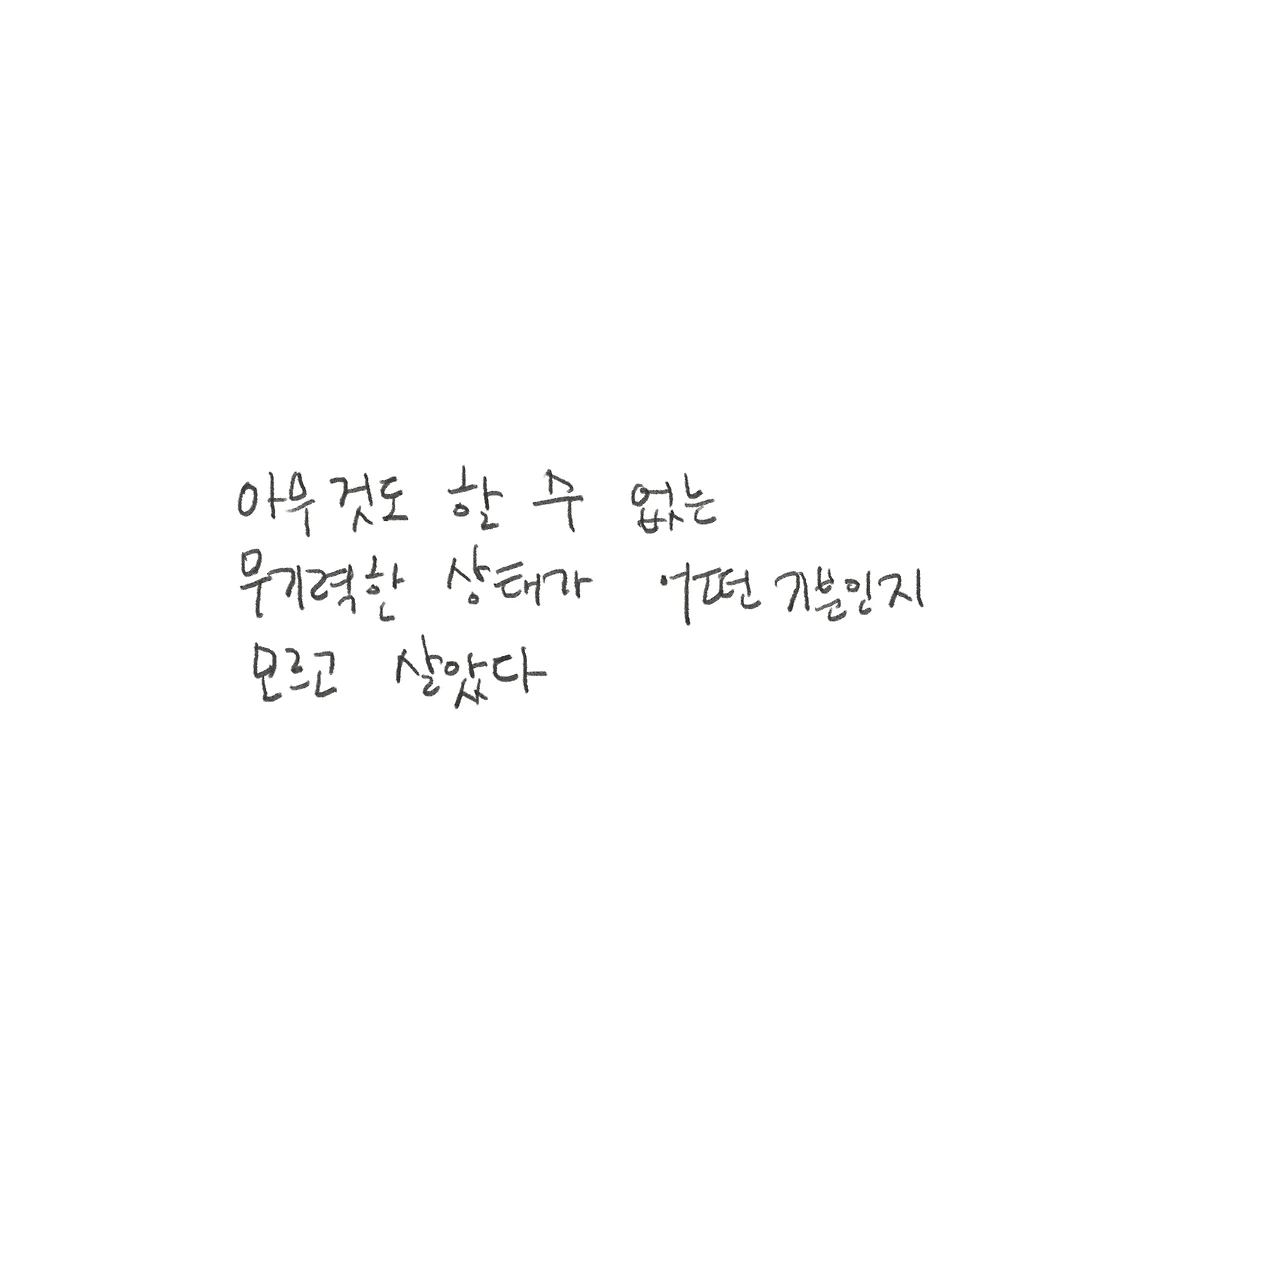 아무것도 할 수 없는
무기력한 상태가 어떤 기분인지
모르고 살았다